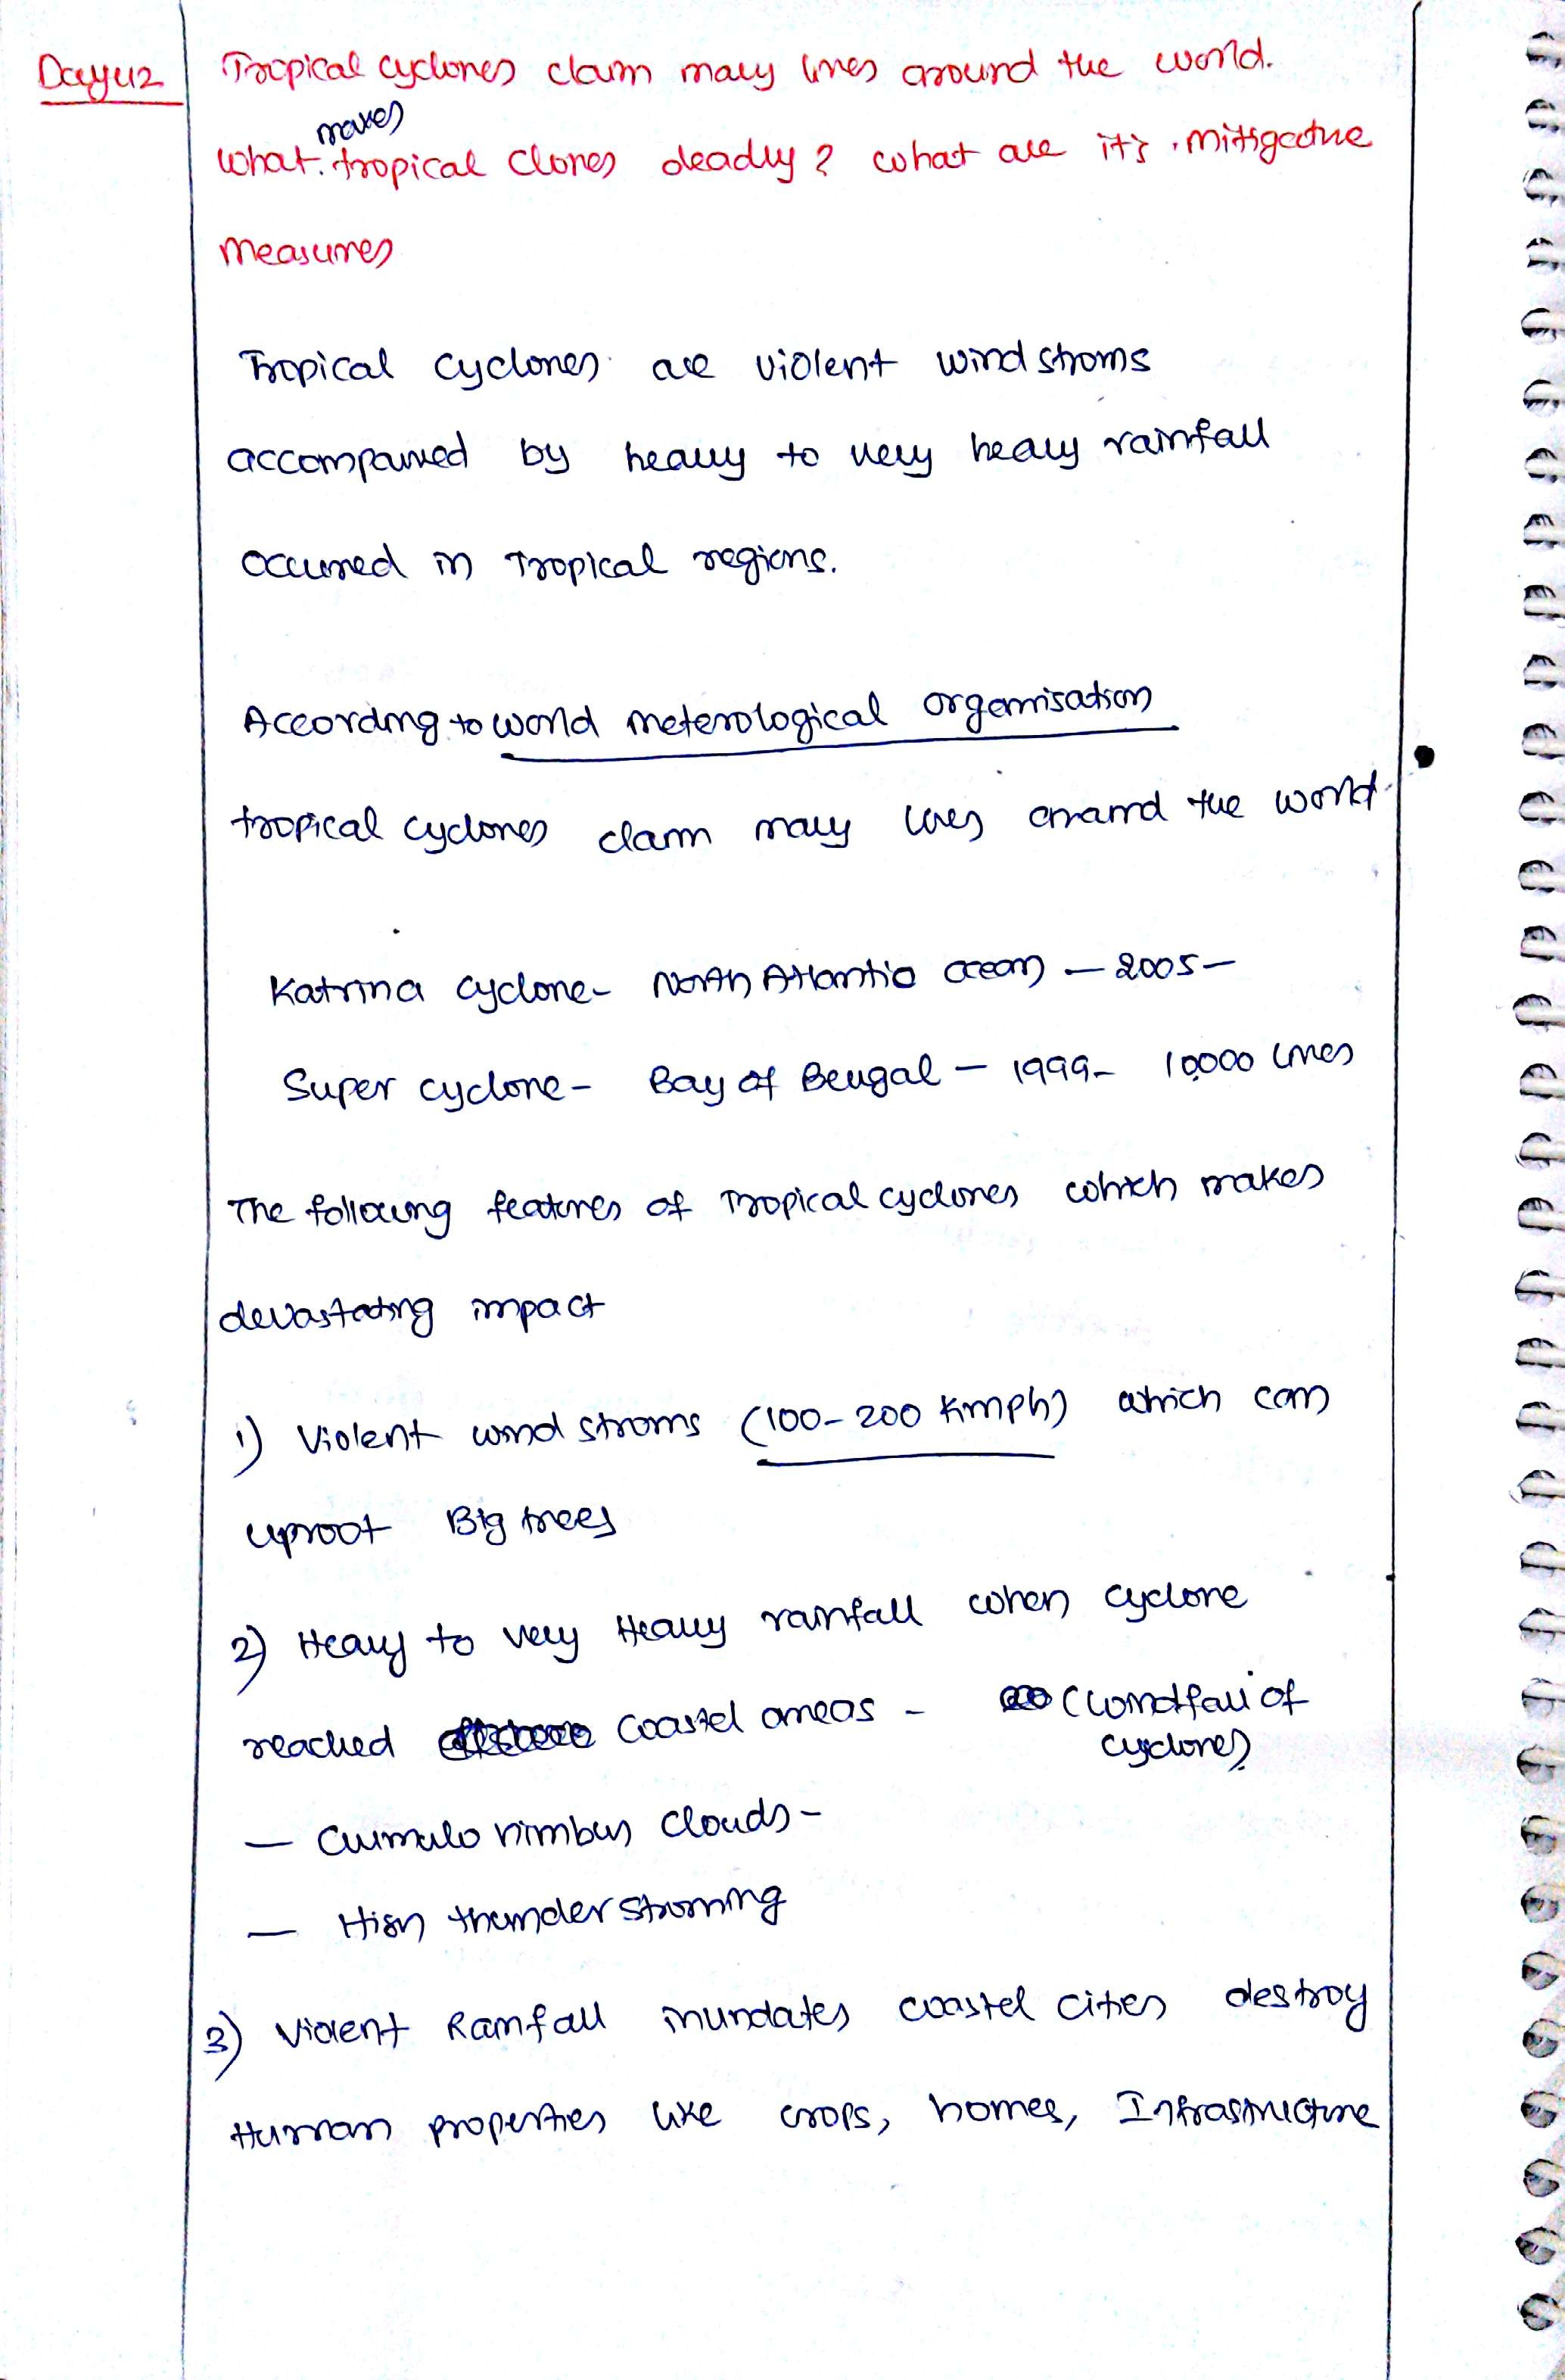 Day 42
Tropical cyclones claim many lives around the world.
makes
What tropical clones deadly? what are it's mitigative
measures
Tropical cyclones are violent wind stroms
accompanied by heavy to very heavy rainfall
occurred in Tropical regions.
According to world meterological organisation
tropical cyclones claim many lives around the world.
Katrina cyclone - North Atlantic ocean - 2005 -
Super cyclone - Bay of Bengal - 1999 - 10,000 lives
The following features of Tropical cyclones which makes
devastating impact
1) Violent wind stroms (100-200 kmph) which can
uproot Big trees
2) Heavy to very Heavy rainfall when cyclone
reached coastel areas - (Landfall of
cyclones)
- Cumulo nimbus clouds -
- High thunder stroming
3) Violent Rainfall inundates coastel cities destroy
Human properties like crops, homes, Infrastructure